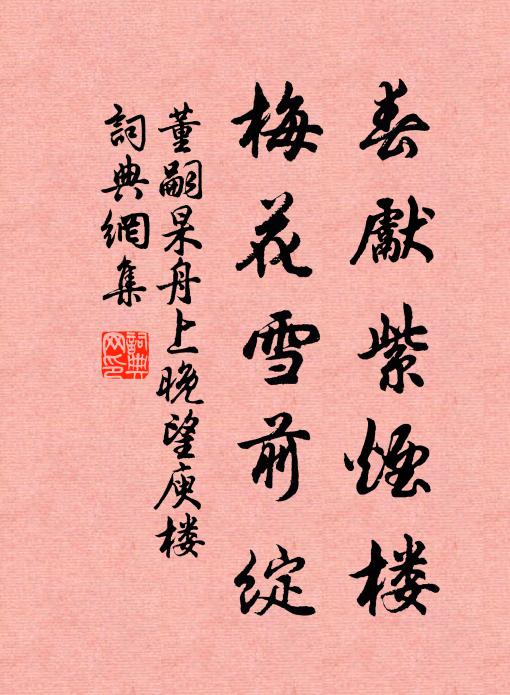 春獻紫煙楼
梅花雪前綻
董嗣杲舟上晚望庾楼
詞典網集
詞典网印